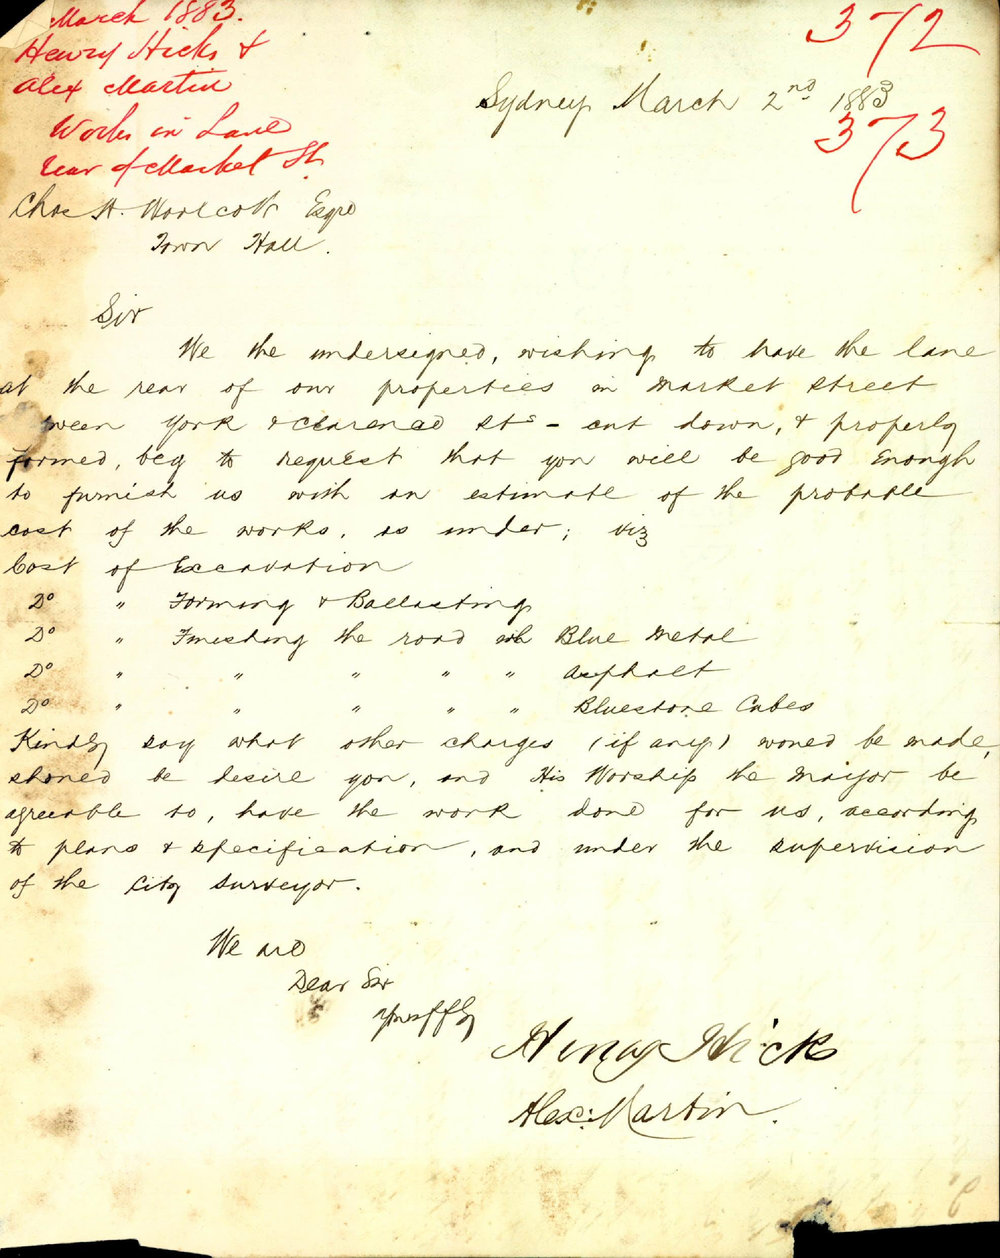 March 1883.
Henry Hicks &
Alex Martin
Works in Lane
rear of Market St.
372
373
Sydney March 2nd 1883
Chas H. Woolcott Esqre
Town Hall.
Sir
We the undersigned, wishing to have the lane
at the rear of our properties in Market Street
ween York & Clarence Sts - cut down, & properly
formed, beg to request that you will be good Enough
to furnish us with an estimate of the probable
cost of the works, as under; viz
Cost of Excavation
Do " Forming & Ballasting
Do " Finishing the road with Blue Metal
Do " " " " " Asphalt
Do " " " " " Bluestone Cubes
Kindly say what other charges (if any) would be made,
should we desire you, and His Worship the Mayor be
agreeable to, have the work done for us, according
to plans & specification, and under the supervision
of the City Surveyor.
We are
Dear Sir
Yours ffly
Henry Hicks
Alex: Martin.